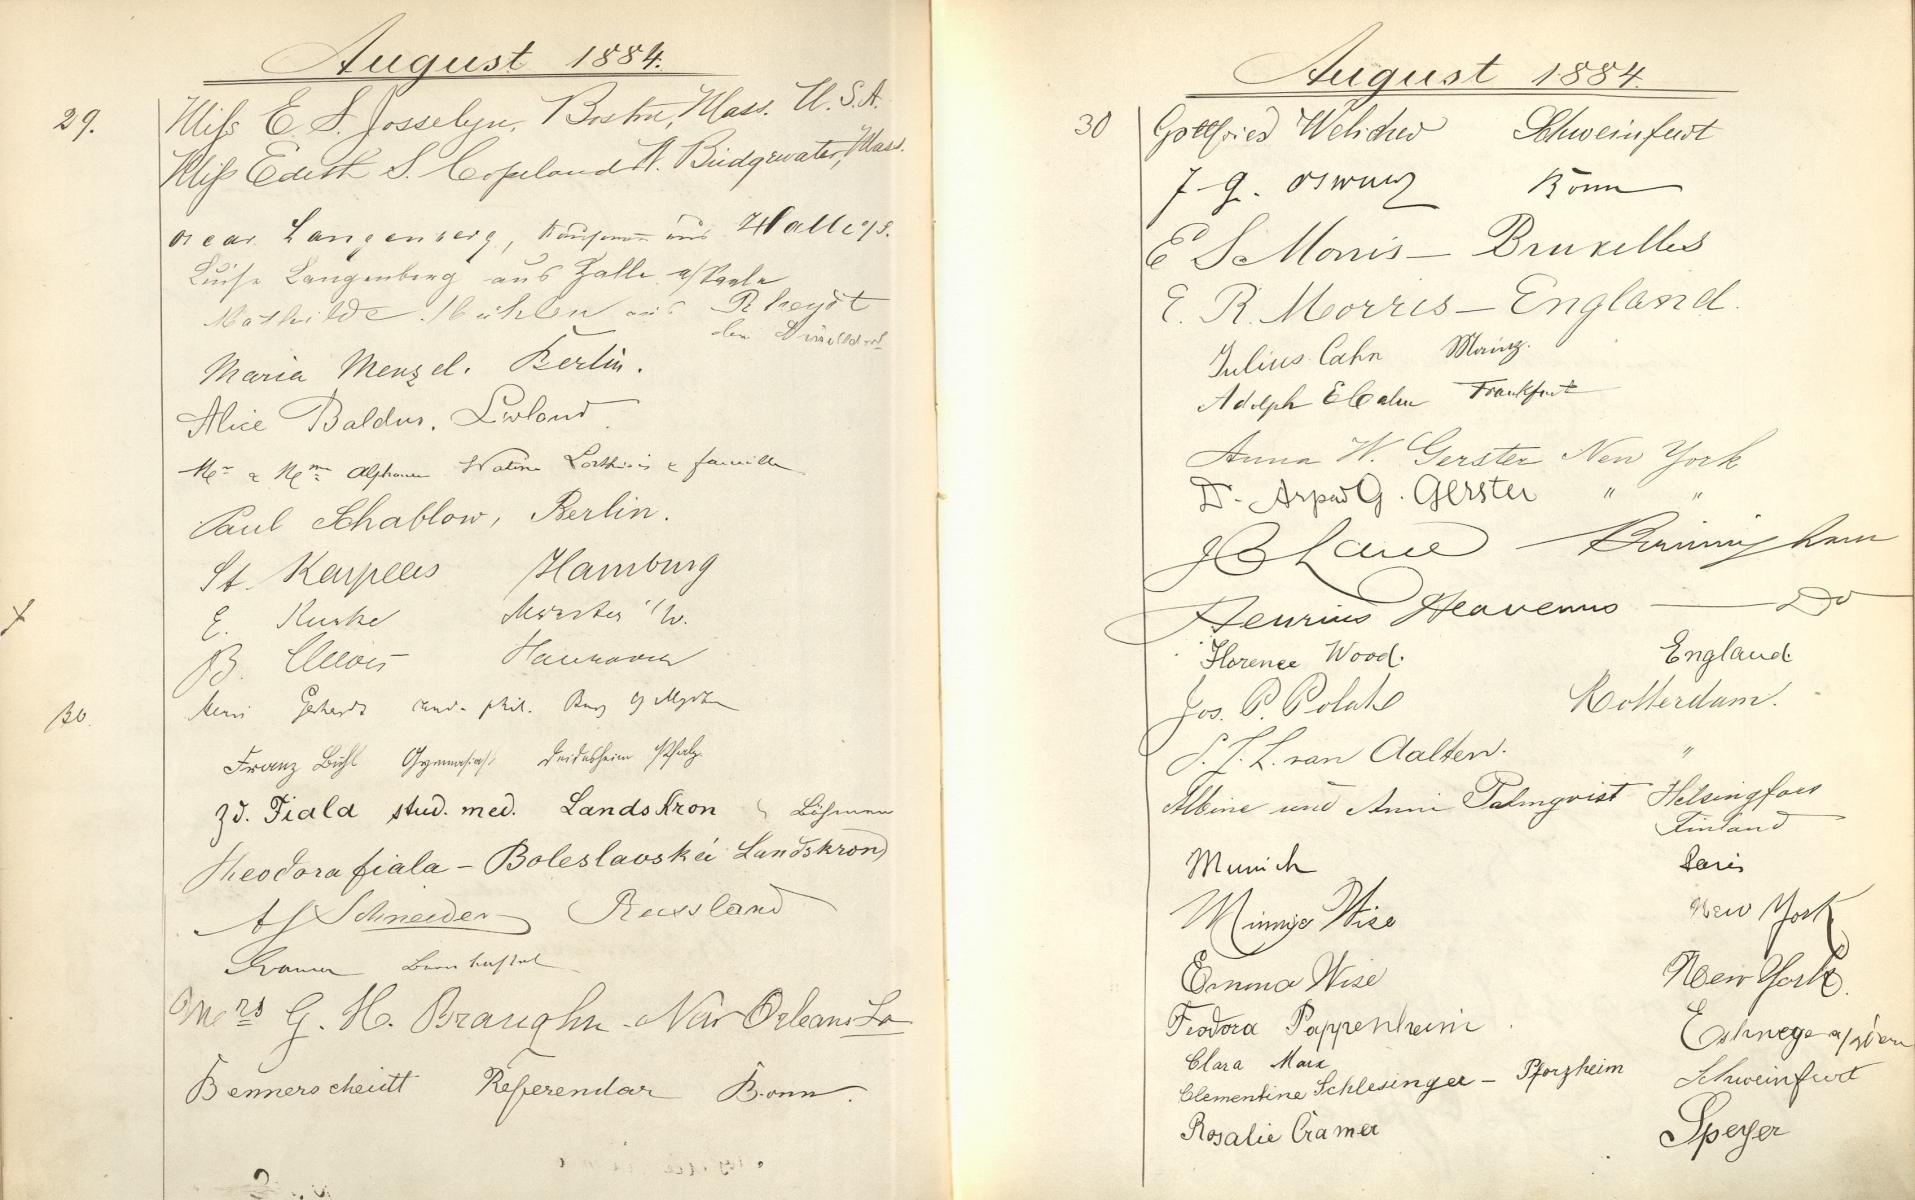 August 1884.
29.
Miss E. S. Josselyn, Boston, Mass. U.S.A.
Miss Edith S. Copeland W. Bridgewater, Mass.
Oscar Langenberg, Kaufmann aus Halle a/S.
Luise Langenberg aus Halle a/Saale
Mathilde Mühlen aus Rheydt
Maria Menzel. Berlin.
Alice Baldus. Livland
Mr & Mme Alphonse & famille
Paul Schablow, Berlin.
St. Karpeles Hamburg
E. Kuske Münster i/W.
B. Hannover
30.
Gerhardt cand. phil.
Franz Buhl Gymnasiast Deidesheim Pfalz
Zd. Fiala stud. med. Landskron Böhmen
Theodora fiala - Boleslavskei Landskron
Schneider Russland
Mrs G. H. Braughn - New Orleans La
Bennerscheidt Referendar Bonn.
August 1884.
30
Gottfried Schweinfurt
J. G. Bonn
E S Morris - Bruxelles
E. R. Morris - England.
Julius Cahn Mainz.
Adolph E Cahn Frankfurt
Anna W. Gerster New York
Dr. Arpad G. Gerster " "
Birmingham
Heavens - Do
Florence Wood. England.
Jos. P. Polak Rotterdam.
S. J. L. van Aalten. "
Albine und Anni Palmqvist Helsingfors
Finland
Munich Paris
Minnie Wise New York
Emma Wise New York.
Feodora Pappenheim
Clara Marx Schweinfurt
Clementine Schlesinger - Pforzheim
Rosalie Cramer Speyer